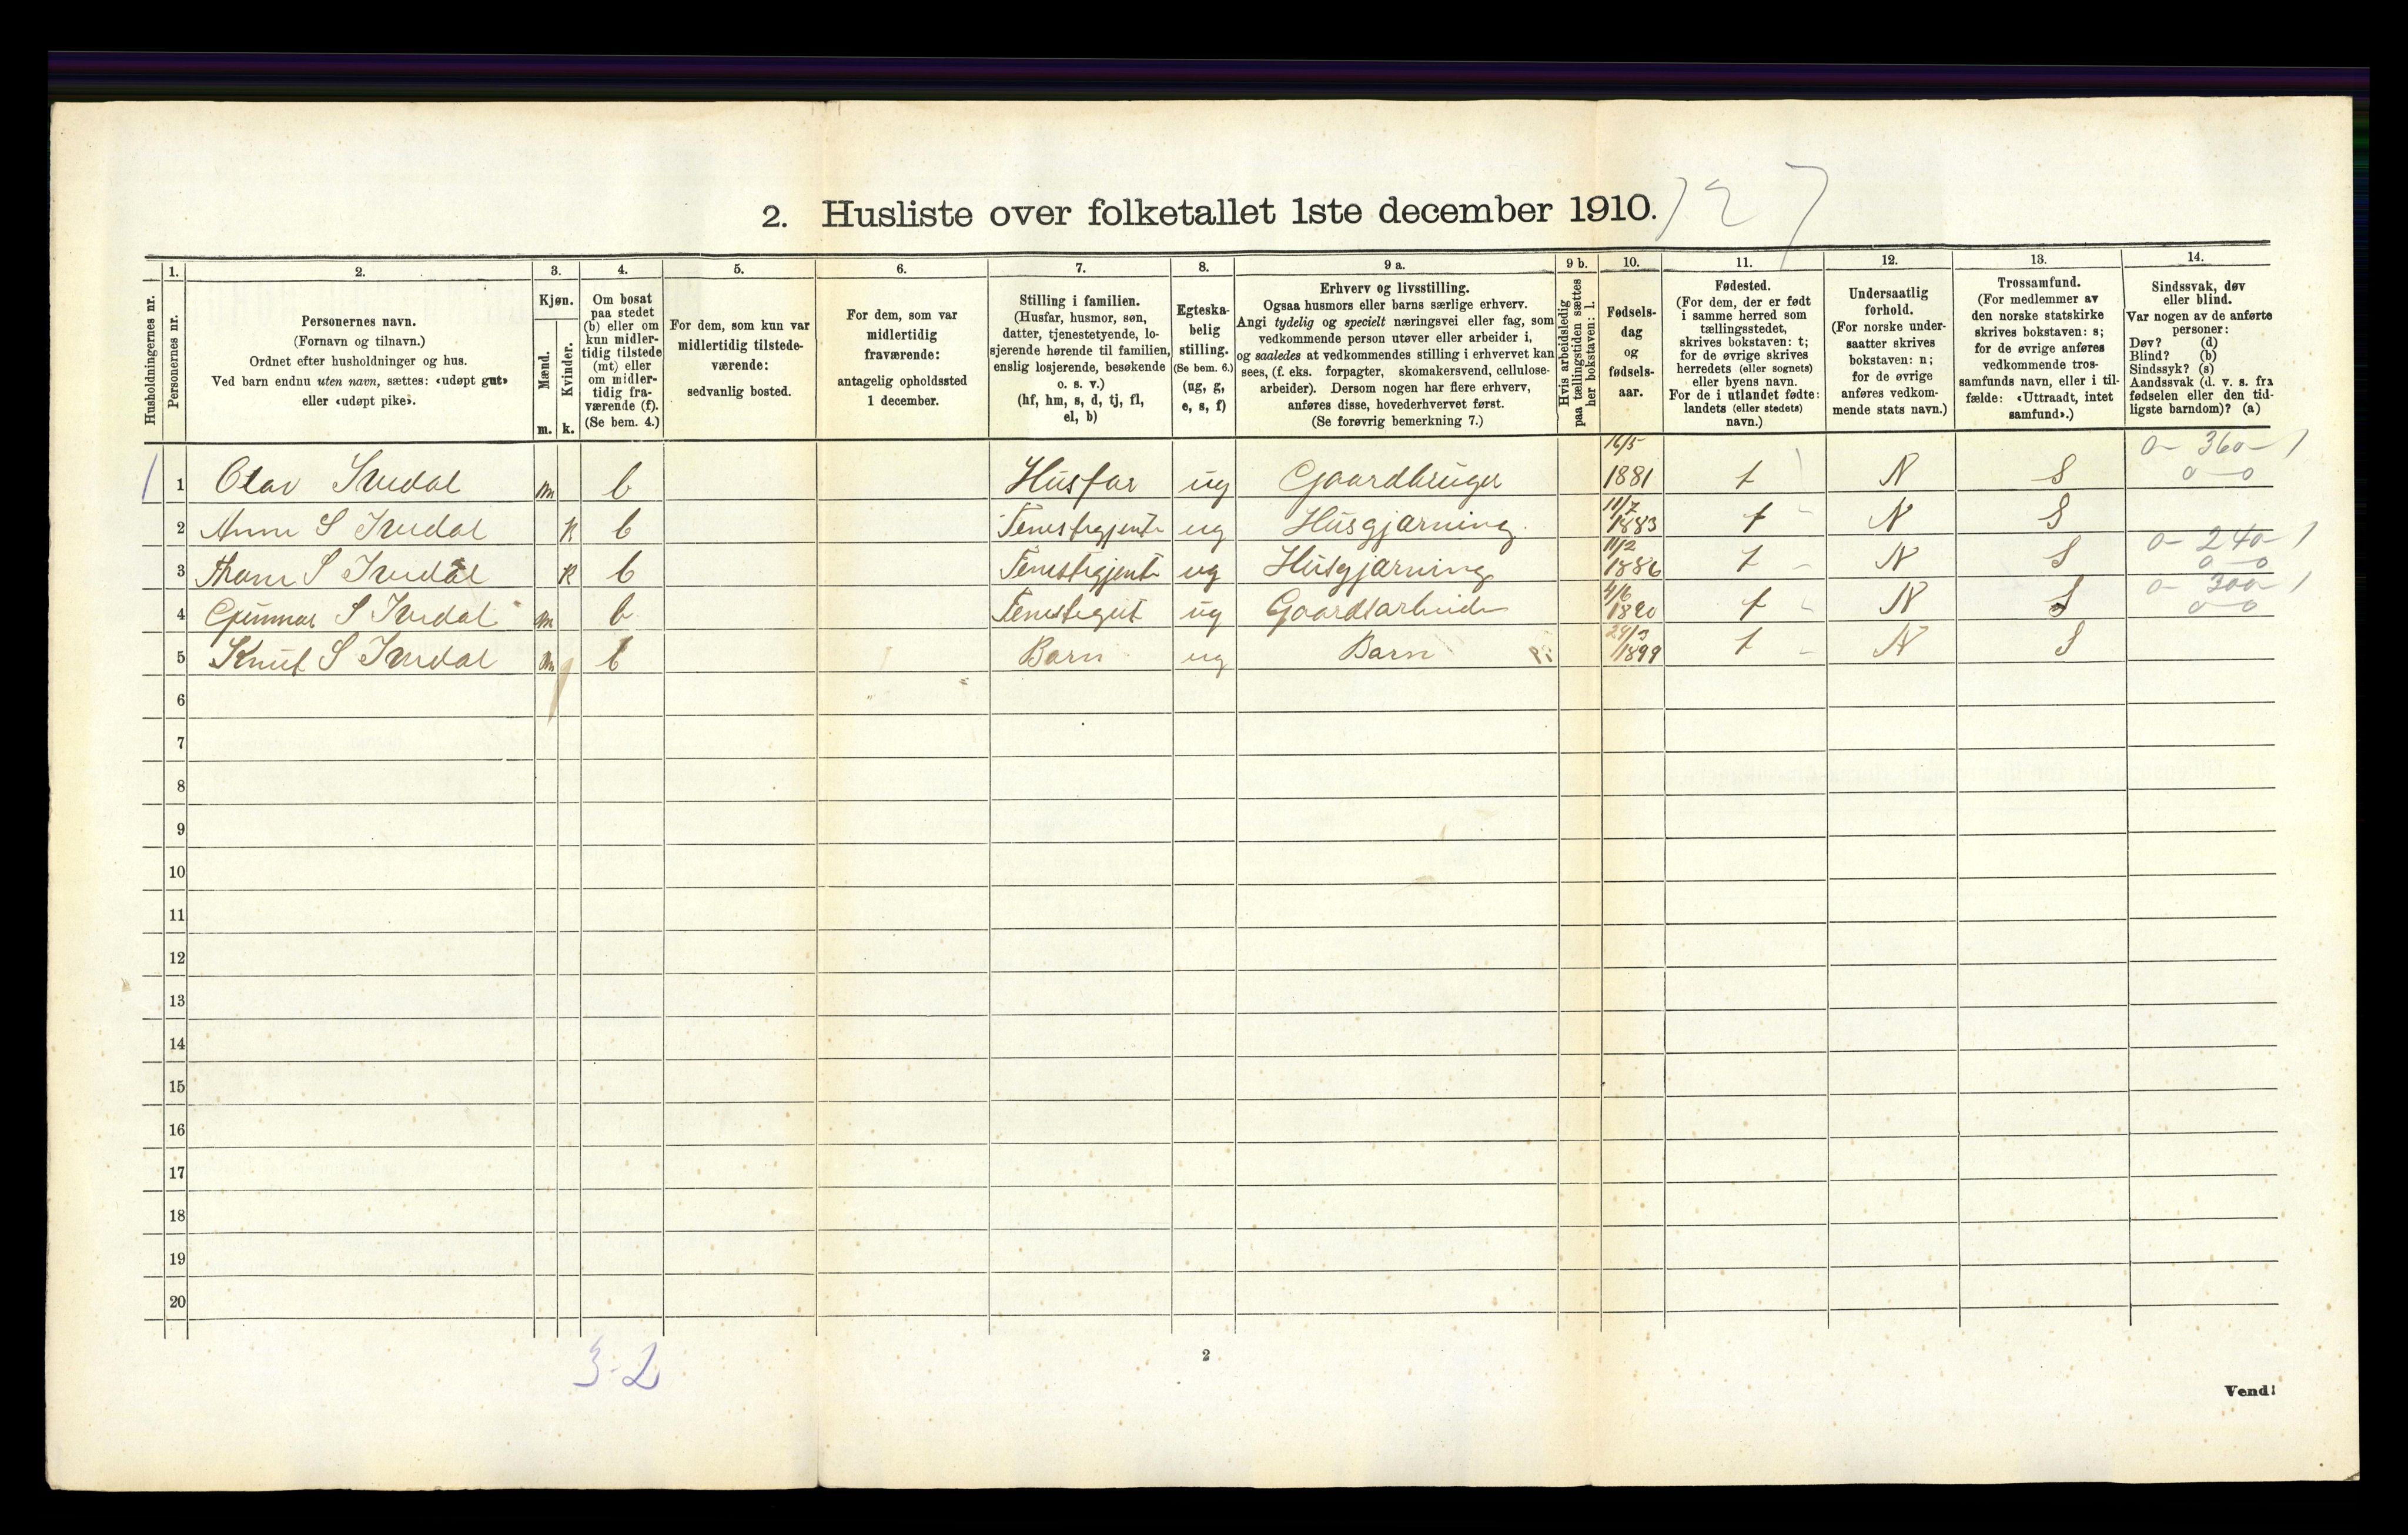 2. Husliste over folketallet 1ste december 1910. 127
Husholdningernes nr.
1. Personernes nr.
2. Personernes navn. (Fornavn og tilnavn.) Ordnet efter husholdninger og hus. Ved barn endnu uten navn, sættes: «udøpt gut» eller «udøpt pike».
3. Kjøn. Mænd. m. Kvinder. k.
4. Om bosat paa stedet (b) eller om kun midlertidig tilstede (mt) eller om midlertidig fraværende (f). (Se bem. 4.)
5. For dem, som kun var midlertidig tilstedeværende: sedvanlig bosted.
6. For dem, som var midlertidig fraværende: antagelig opholdssted 1 december.
7. Stilling i familien. (Husfar, husmor, søn, datter, tjenestetyende, losjerende hørende til familien, enslig losjerende, besøkende o. s. v.) (hf, hm, s, d, tj, fl, el, b)
8. Egteskabelig stilling. (Se bem. 6.) (ug, g, e, s, f)
9 a. Erhverv og livsstilling. Ogsaa husmors eller barns særlige erhverv. Angi tydelig og specielt næringsvei eller fag, som vedkommende person utøver eller arbeider i, og saaledes at vedkommendes stilling i erhvervet kan sees, (f. eks. forpagter, skomakersvend, cellulosearbeider). Dersom nogen har flere erhverv, anføres disse, hovederhvervet først. (Se forøvrig bemerkning 7.)
9 b. Hvis arbeidsledig paa tællingstiden sættes her bokstaven: l.
10. Fødselsdag og fødselsaar.
11. Fødested. (For dem, der er født i samme herred som tællingsstedet, skrives bokstaven: t; for de øvrige skrives herredets (eller sognets) eller byens navn. For de i utlandet fødte: landets (eller stedets) navn.)
12. Undersaatlig forhold. (For norske undersaatter skrives bokstaven: n; for de øvrige anføres vedkommende stats navn.)
13. Trossamfund. (For medlemmer av den norske statskirke skrives bokstaven: s; for de øvrige anføres vedkommende trossamfunds navn, eller i tilfælde: «Uttraadt, intet samfund».)
14. Sindssvak, døv eller blind. Var nogen av de anførte personer: Døv? (d) Blind? (b) Sindssyk? (s) Aandssvak (d. v. s. fra fødselen eller den tidligste barndom)? (a)
1 1 Olav Ivedal m b Husfar ug Gaardbruger 16/5 1881 t N S 0 - 360 - 1 0 - 0
2 Anne S Ivedal K b Tenestegjente ug Husgjærning. 11/7 1883 t N S
3 S Ivedal K b Tenestegjente ug Husgjærning 11/2 1886 t N S 0 - 240 - 1 0 - 0
4 Gunnar S Ivedal m b Tenestegut ug Gaardsarbeide 4/6 t N S 0 - 300 - 1 0 - 0
5 Knut S Ivedal m b Barn ug Barn 24/3 1899 t N S
6
7
8
9
10
11
12
13
14
15
16
17
18
19
20
3-2
2
Vend!